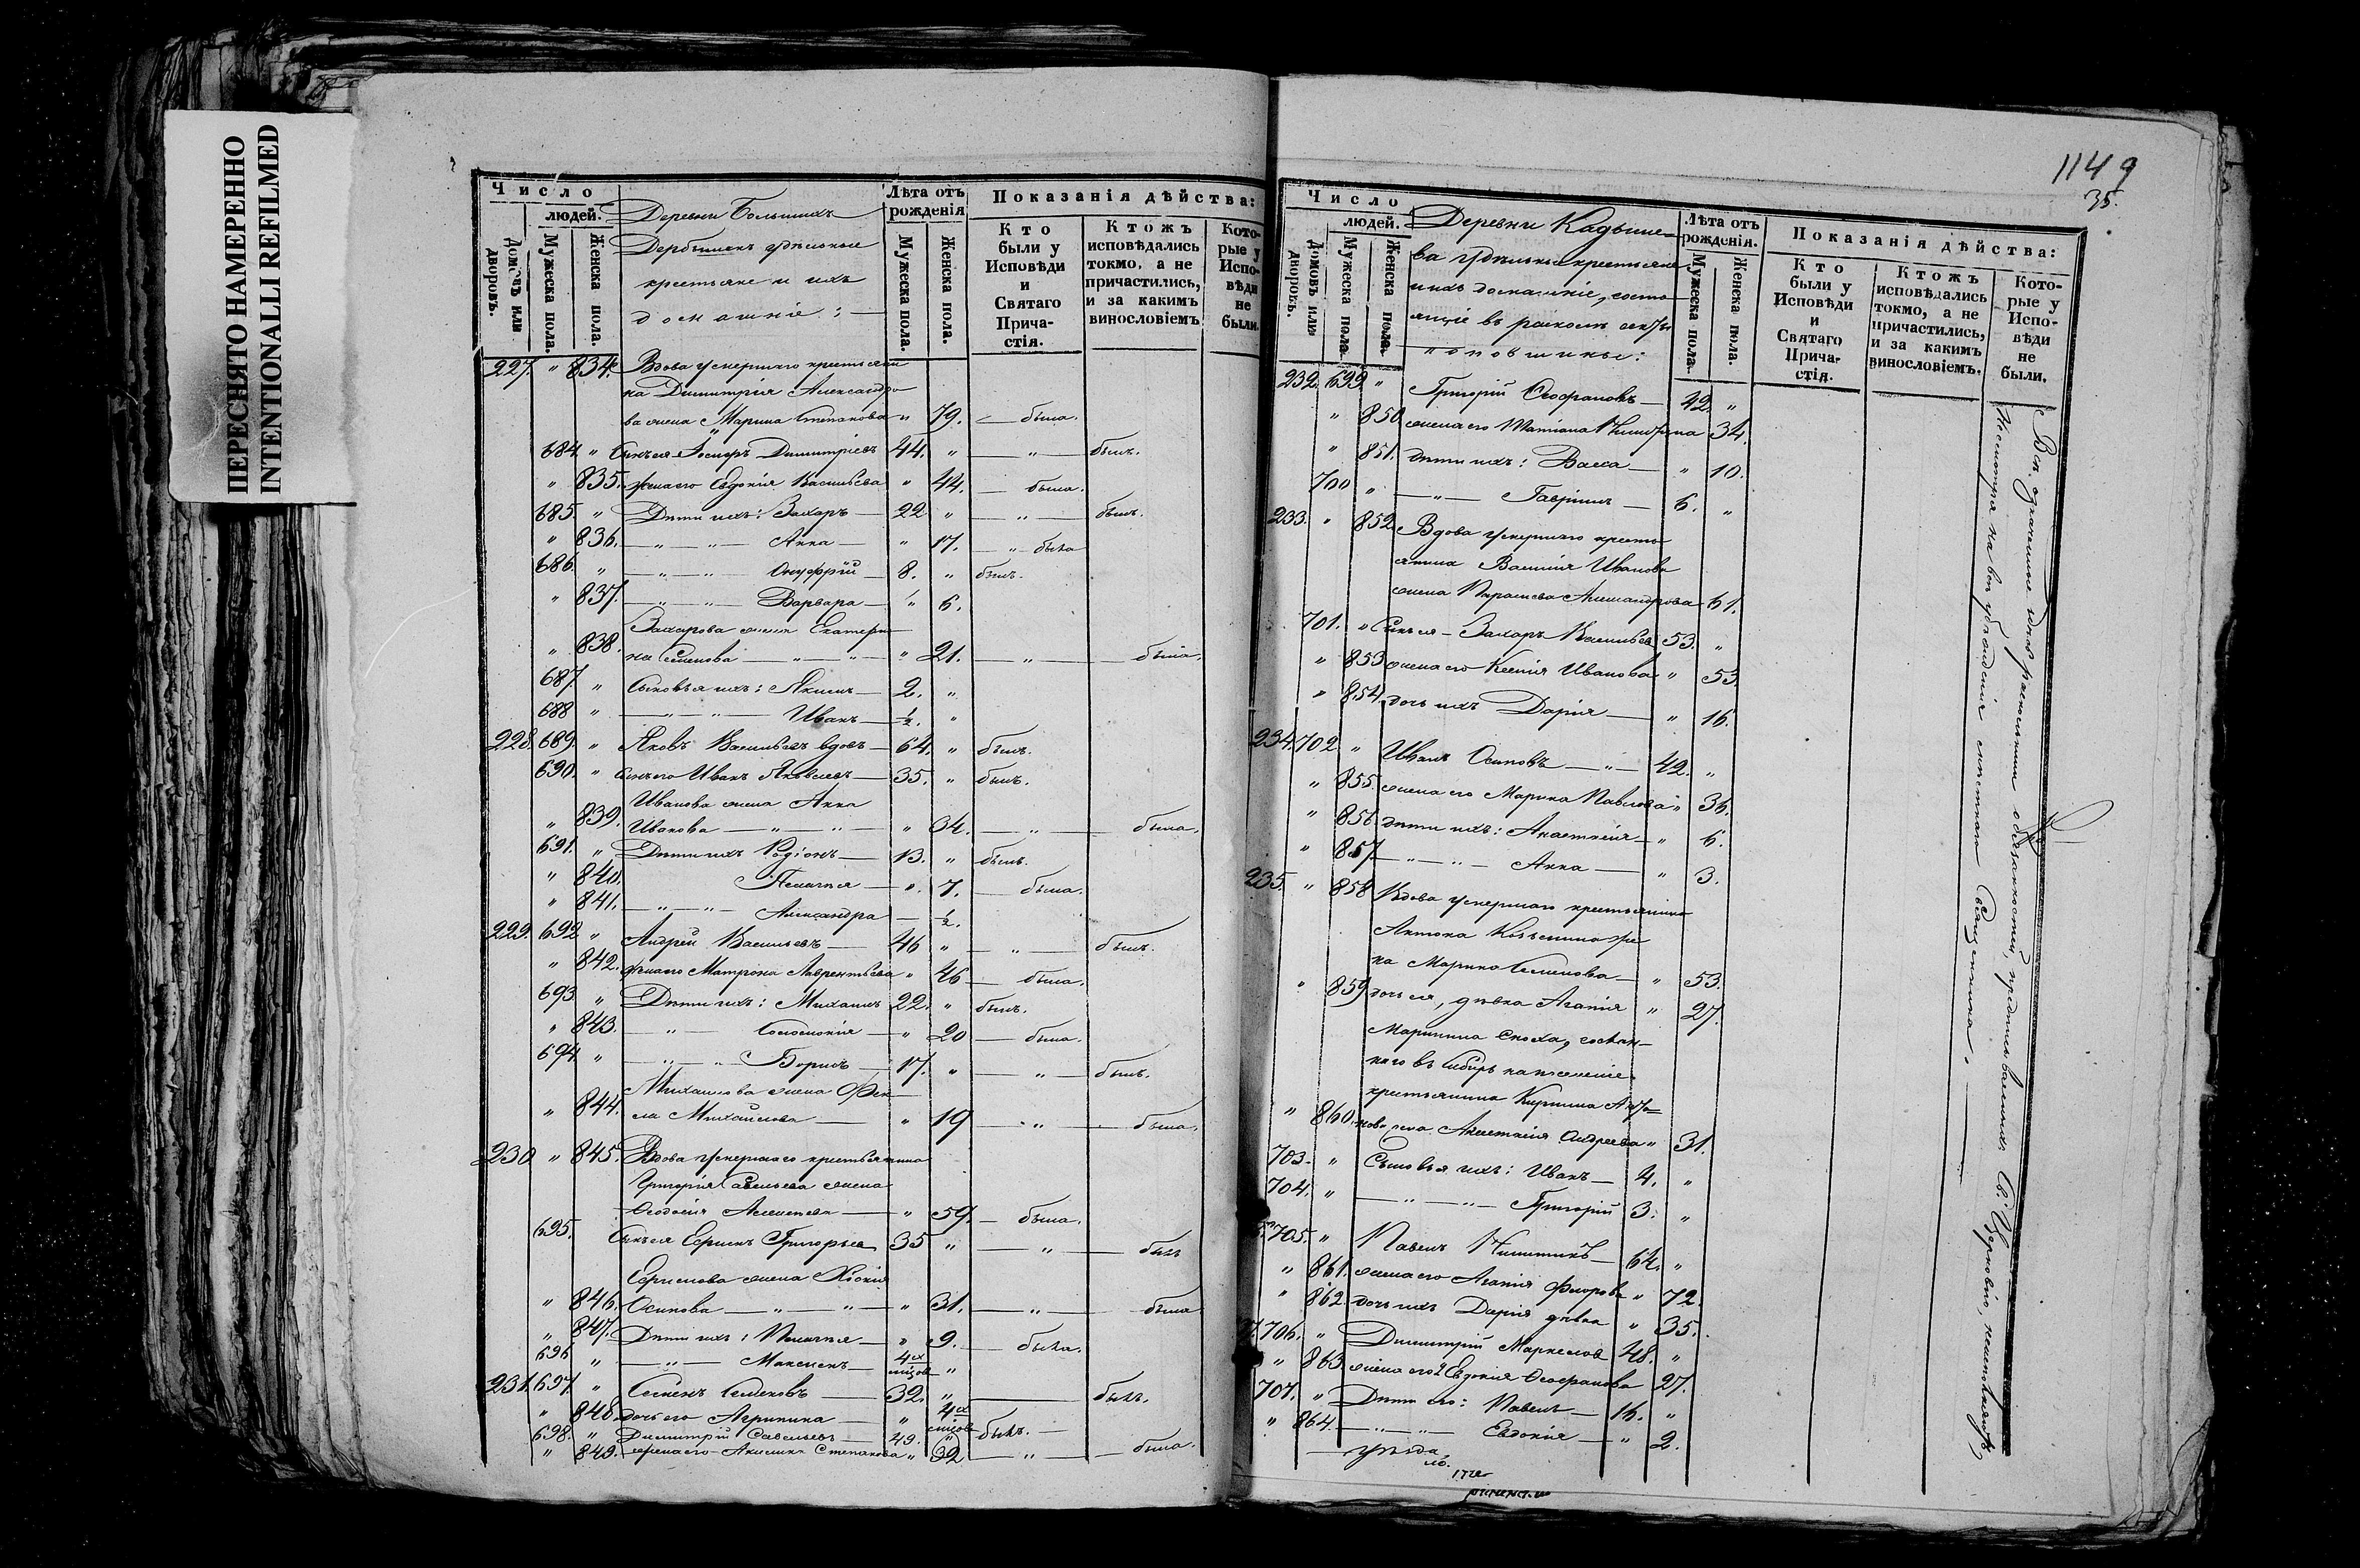 ПЕРЕСНЯТО НАМЕРЕННО
INTENTIONALLI REFILMED
Число
людей.
Домовъ или дворовъ.
Мужеска пола.
Женска пола.
Деревни Большихъ
Дербышекъ удѣльные
крестьяне и ихъ
домашніе:
Лѣта отъ рожденія
Мужеска пола.
Женска пола.
Показанія дѣйства:
Кто были у Исповѣди и Святаго Причастія.
Ктожъ исповѣдались токмо, а не причастились, и за какимъ винословіемъ
Которые у Исповѣди не были.
227. " 834. Вдова умершаго крестьяни
на Димитрія Александро
ва жена Марина Степанова " 79. — была.
684. " Сынъ ея Іосифъ Димитріевъ 44. " — " — былъ.
" 835. жена его Евдокія Васильева " 44. — была.
685. " Дѣти ихъ: Захаръ — 22 " — " — былъ.
" 836. — " — " — Анна — " 17. — " была
686. " — " — " Онуфрій — 8. " былъ.
" 837. — " — " — Варвара — " 6.
Захарова жена Екатери
" 838. на Семенова — " — " — " 21. — " — была.
687. " Сыновья ихъ: Якимъ — 2. "
688 " — " — " — Иванъ — ½. "
228. 689. " Яковъ Васильевъ вдовъ — 64. " былъ.
690. " Сынъ его Иванъ Яковлевъ — 35. " былъ.
Иванова жена Анна
" 839. Иванова — " — " — " 34. — " — была.
691. " Дѣти ихъ Родіонъ — 13. " былъ.
" 840. Пелагея — ". 7. — была.
" 841. — " — " — Александра — ½.
229. 692 " Андрей Васильевъ — 46 " — " — былъ.
" 842. жена его Матрона Лаврентьева " 46 — была.
693 " Дѣти ихъ: Михаилъ 22. " былъ.
" 843. — " — Соломонія — " 20 — была.
694 " — " — " Борисъ — 17. " — " — былъ.
Михаилова жена Фек
" 844. ла Михайлова — " 19 — " — была.
230 " 845. Вдова умершаго крестьянина
Григорія Савельева жена
Ѳеодосія Алексѣева — " 59. — была.
695. Сынъ ея Ефимъ Григорьев 35 " — " — былъ
Ефимова жена
" 846. Осипова — " — " — " 31. — " — была
" 847. Дѣти ихъ: Пелагея — " 9. — была.
696 " — " — Максимъ — 4х мцов "
231. 697. " Семенъ Семеновъ — 32. " — былъ.
" 848. дочь его Агрипина — " 4х
698. " Димитрій Савельевъ — 49. " былъ. —
" 849. жена его Акилина Степанова " 32 — " — была.
1149
35.
Число
людей.
Домовъ или дворовъ.
Мужеска пола.
Женска пола.
Деревни Кадыше-
ва удѣльные крестьяне
и ихъ домашніе, состо
ящіе въ расколѣ секты
поповщины:
Лѣта отъ рожденія.
Мужеска пола.
Женска пола.
Показанія дѣйства:
Кто были у Исповѣди и Святаго Причастія.
Ктожъ исповѣдались токмо, а не причастились, и за какимъ винословіемъ.
Которые у Исповѣди не были.
232. 699 " Григорій Ѳеофановъ — 42. "
" 850. жена его Татіана Никитина 34.
" 851. дѣти ихъ: Васса — " 10.
700 " — " — Гавріилъ — 6. "
233. " 852. Вдова умершаго кресть
янина Василія Иванова
жена Парасковья Александрова 61.
701. " Сынъ ея — Захаръ Васильев 53. "
" 853 жена его Ксенія Иванова " 53.
" 854. дочь ихъ Дарія — " 16.
234. 702 " Иванъ Осиповъ — " — 42. "
" 855. жена его Марина Павлова " 36.
" 856. дѣти ихъ: Анастасія — " 6.
" 857. — " — " — Анна — " 3.
235. " 858 Вдова умершаго крестьянина
Антона Козьмина же
на Марина Семенова — " 53.
" 859 дочь ея, дѣвка Агапія " 27.
Маринина сноха, сослан-
наго въ Сибирь на поселеніе
крестьянина Кирилла Анто-
" 860. нова жена Анастасія Андреева " 31.
703. " Сыновья ихъ: Иванъ — 4. "
704. " — " — " — Григорій 3. "
705. " Павелъ Никитинъ — 64. "
" 861. жена его Агапія Флорова " 72.
" 862. дочь ихъ Дарія дѣвка " 35.
706. " Димитрій Маркелов 48. "
" 863. жена его 2я Евдокія Ѳеофанова 27.
707. " Дѣти его: Павелъ — 16. "
" 864. — " — " — Евдокія — " 2.
Всѣ означенные раскольники обязанностей, предписываемыхъ Св. Церковію, неисполняютъ,
Несмотря на всѣ убѣжденія мѣстнаго Священника. —